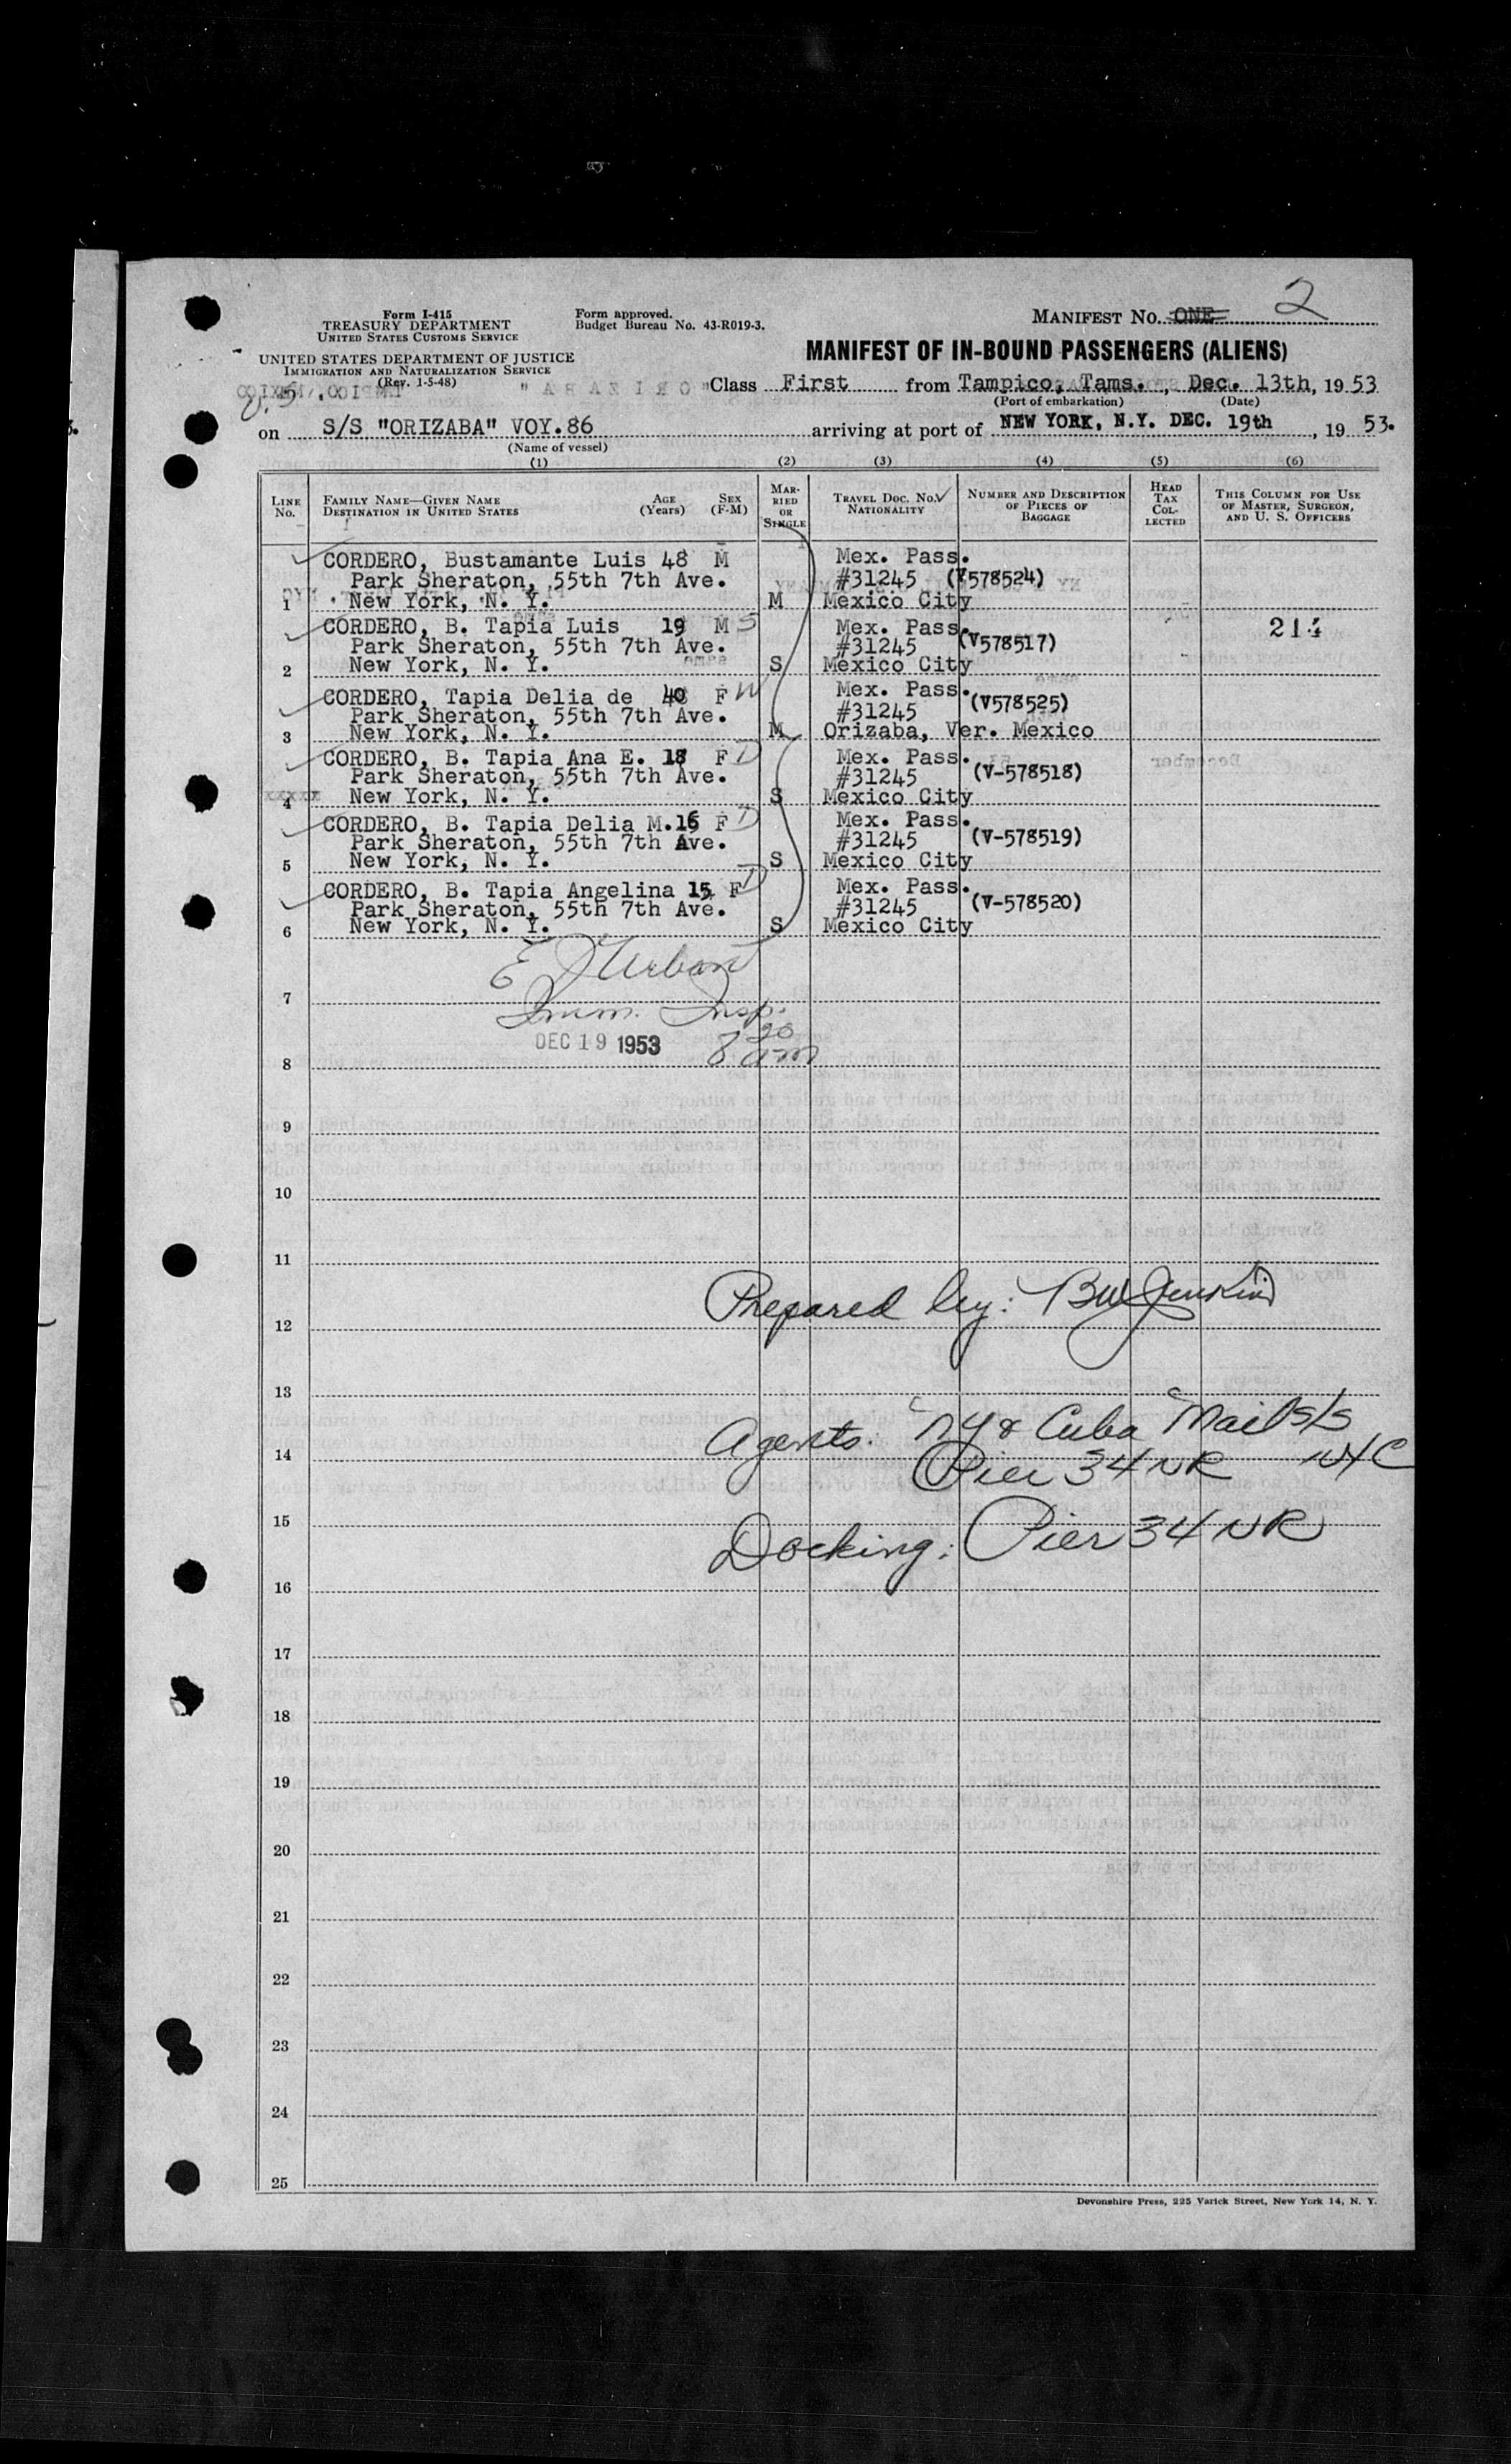 Form I-415
TREASURY DEPARTMENT
UNITED STATES CUSTOMS SERVICE
UNITED STATES DEPARTMENT OF JUSTICE
IMMIGRATION AND NATURALIZATION SERVICE
(Rev. 1-5-48)
Form approved.
Budget Bureau No. 43-R019-3.
MANIFEST No. ONE 2
MANIFEST OF IN-BOUND PASSENGERS (ALIENS)
Class First from Tampico, Tams., Dec. 13th, 1953
(Port of embarkation) (Date)
on S/S "ORIZABA" VOY.86 arriving at port of NEW YORK, N.Y. DEC. 19th, 19 53.
(Name of vessel)
(1) (2) (3) (4) (5) (6)
LINE No.
FAMILY NAME—GIVEN NAME
DESTINATION IN UNITED STATES
AGE (Years)
SEX (F-M)
MARRIED OR SINGLE
TRAVEL DOC. NO.
NATIONALITY
NUMBER AND DESCRIPTION OF PIECES OF BAGGAGE
HEAD TAX COLLECTED
THIS COLUMN FOR USE OF MASTER, SURGEON, AND U. S. OFFICERS
CORDERO, Bustamante Luis 48 M Mex. Pass.
Park Sheraton, 55th 7th Ave. #31245 (V578524)
1 New York, N. Y. M Mexico City
CORDERO, B. Tapia Luis 19 M S Mex. Pass. 214
Park Sheraton, 55th 7th Ave. #31245 (V578517)
2 New York, N. Y. S Mexico City
CORDERO, Tapia Delia de 40 F W Mex. Pass.
Park Sheraton, 55th 7th Ave. #31245 (V578525)
3 New York, N. Y. M Orizaba, Ver. Mexico
CORDERO, B. Tapia Ana E. 18 F D Mex. Pass.
Park Sheraton, 55th 7th Ave. #31245 (V-578518)
4 New York, N. Y. S Mexico City
CORDERO, B. Tapia Delia M. 16 F D Mex. Pass.
Park Sheraton, 55th 7th Ave. #31245 (V-578519)
5 New York, N. Y. S Mexico City
CORDERO, B. Tapia Angelina 15 F D Mex. Pass.
Park Sheraton, 55th 7th Ave. #31245 (V-578520)
6 New York, N. Y. S Mexico City
E J Urban
7
Imm. Insp.
DEC 19 1953 8 20 am
8
9
10
11
Prepared by: BW Jenkins
12
13
Agents: NY & Cuba Mail S/S
14 Pier 34 NR NYC
15
Docking: Pier 34 NR
16
17
18
19
20
21
22
23
24
25
Devonshire Press, 225 Varick Street, New York 14, N. Y.